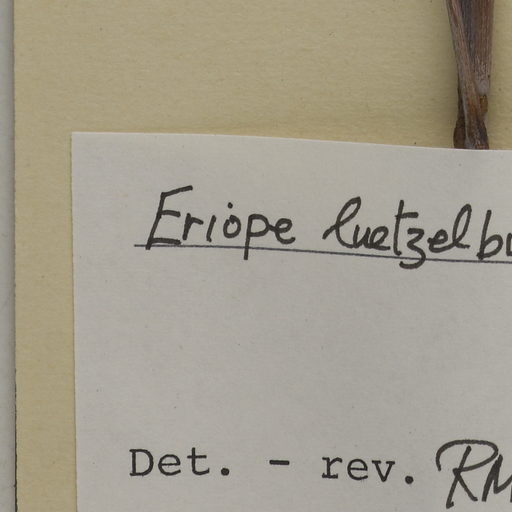 Eriope luetzelbu
Det. - rev. RM